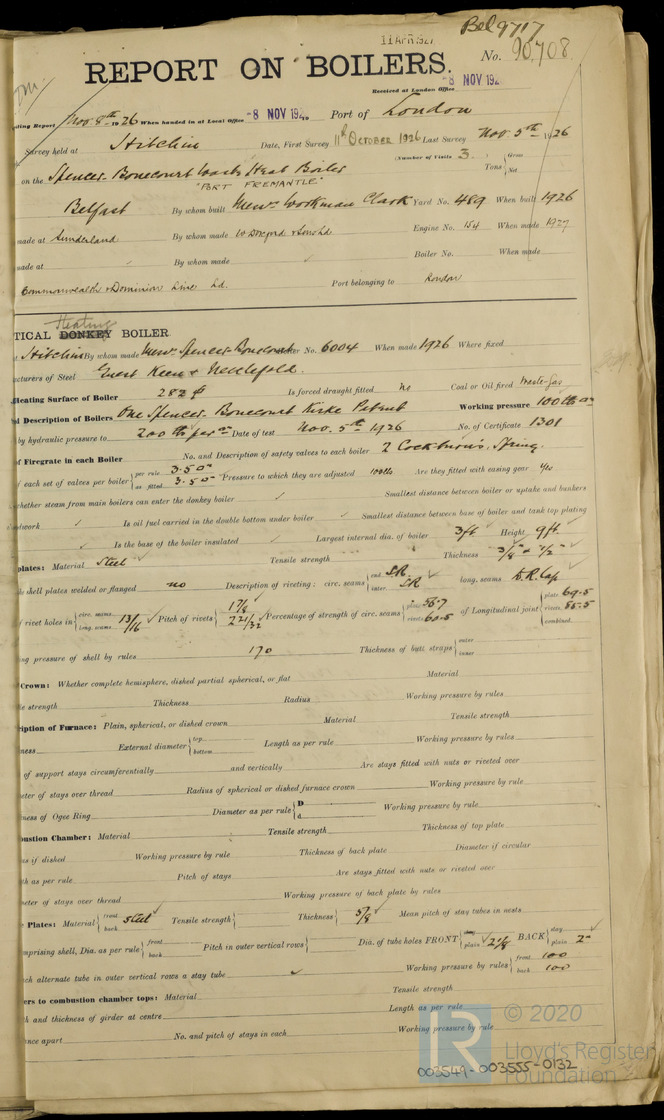 Bel 9717
11 APR 1927
No. 90,708
REPORT ON BOILERS.
Received at London Office -8 NOV 192
iling Report Nov. 8th 1926 When handed in at Local Office -8 NOV 192 Port of London
Survey held at Hitchin Date, First Survey 11th OCTOBER 1926 Last Survey Nov. 5th 1926
(Number of Visits 3 Tons Gross Net
on the Spencer Bonecourt Waste Heat Boiler
"PORT FREMANTLE"
Belfast By whom built Messrs Workman Clark Yard No. 489 When built 1926
made at Sunderland By whom made W Doxford & Sons Ld Engine No. 154 When made 1927
made at By whom made Boiler No. When made
Commonwealth & Dominion Line Ld. Port belonging to London
TICAL Heating DONKEY BOILER.
Hitchin By whom made Messrs Spencer Bonecourt No. 6004 When made 1926 Where fixed
cturers of Steel Guest Keen & Nettlefold.
Heating Surface of Boiler 282 Is forced draught fitted no Coal or Oil fired Waste-Gas
d Description of Boilers One Spencer Bonecourt Kirke Patent Working pressure 100
by hydraulic pressure to 200 lbs per Date of test Nov. 5th 1926 No. of Certificate 1301
of Firegrate in each Boiler No. and Description of safety valves to each boiler 2 Cockburn's, Spring.
of each set of valves per boiler per rule 3.50 as fitted 3.50 Pressure to which they are adjusted 100 lbs Are they fitted with easing gear Yes
whether steam from main boilers can enter the donkey boiler Smallest distance between boiler or uptake and bunkers
odwork Is oil fuel carried in the double bottom under boiler Smallest distance between base of boiler and tank top plating
Is the base of the boiler insulated Largest internal dia. of boiler 3ft Height 9ft.
plates: Material Steel Tensile strength Thickness 3/8" & 1/2"
e shell plates welded or flanged no Description of riveting: circ. seams end S.R. inter. S.R. long. seams D.R. Lap
f rivet holes in circ. seams long. seams 13/16 Pitch of rivets 1 7/8 2 21/32 Percentage of strength of circ. seams plate 56.7 rivets 60.5 of Longitudinal joint plate 69.5 rivets 85.5 combined
ing pressure of shell by rules 170 Thickness of butt straps outer inner
Crown: Whether complete hemisphere, dished partial spherical, or flat Material
le strength Thickness Radius Working pressure by rules
ription of Furnace: Plain, spherical, or dished crown Material Tensile strength
ness External diameter top bottom Length as per rule Working pressure by rules
of support stays circumferentially and vertically Are stays fitted with nuts or riveted over
eter of stays over thread Radius of spherical or dished furnace crown Working pressure by rule
ness of Ogee Ring Diameter as per rule D d Working pressure by rule
bustion Chamber: Material Tensile strength Thickness of top plate
us if dished Working pressure by rule Thickness of back plate Diameter if circular
th as per rule Pitch of stays Are stays fitted with nuts or riveted over
eter of stays over thread Working pressure of back plate by rules
e Plates: Material front back Steel Tensile strength Thickness 5/8 Mean pitch of stay tubes in nests
mprising shell, Dia. as per rule front back Pitch in outer vertical rows Dia. of tube holes FRONT stay plain 2 1/8 BACK stay plain 2"
ch alternate tube in outer vertical rows a stay tube Working pressure by rules front 100 back 100
ers to combustion chamber tops: Material Tensile strength
h and thickness of girder at centre Length as per rule
nce apart No. and pitch of stays in each Working pressure by rule
© 2020
Lloyd's Register
Foundation
003549-003555-0132